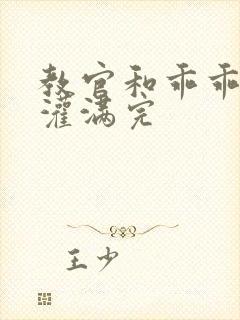 教官和乖乖
灌满完
王少